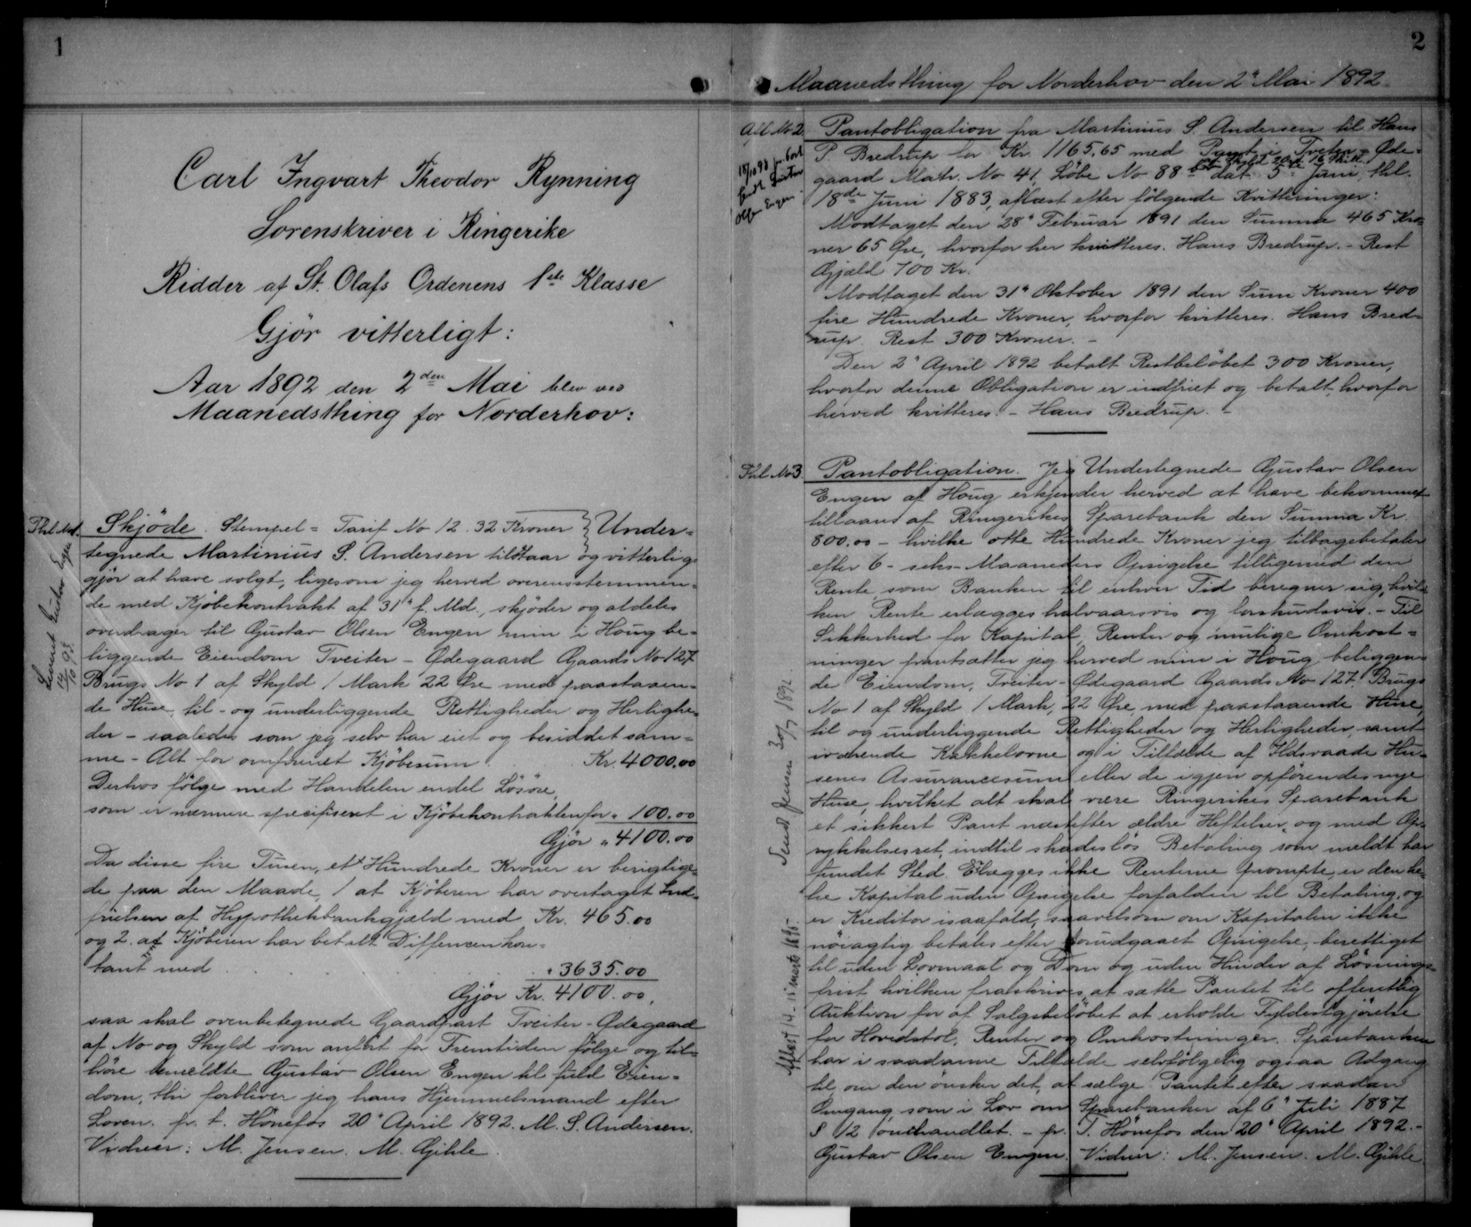 1
Carl Ingvart Theodor Rynning
Sorenskriver i Ringerike
Ridder af St. Olafs Ordenens 1ste Klasse
Gjør vitterligt:
Aar 1892 den 2den Mai blev ved
Maanedsthing for Norderhov:
Thl. No 1.
Skjöde. Stempel = Tarif No 12. 32 Kroner } Under-
tegnede Martinius S. Andersen tilstaar og vitterlig-
gjør at have solgt, ligesom jeg herved overensstemmen-
de med Kjöbekontrakt af 31' f. Md., skjöder og aldeles
overdrager til Gustav Olsen Engen min i Houg be-
liggende Eiendom Treiter - Ödegaard Gaards No 127
Brugs No 1 af Skyld 1 Mark 22 Øre med paastaaen-
de Huse, til- og underliggende Rettigheder og Herlighe-
der - saaledes som jeg selv har eiet og besiddet sam-
me - Alt for omforenet Kjöbesum Kr. 4000.00
Derhos fölge med Handelen endel Lösöre,
som er nærmere specifiseret i Kjöbekontrakten for " 100.00
Gjör " 4100.00
Da disse fire Tusen, et Hundrede Kroner er berigtige-
de paa den Maade, 1 at Kjöberen har overtaget Ind-
frielsen af Hypothekbankgjæld med Kr. 465.00
og 2. at Kjöberen har betalt Differencen kon-
tant med " 3635.00
Gjör Kr. 4100.00,
saa skal ovenbetegnede Gaardpart Treiter - Ödegaard
af No og Skyld som anfört for Fremtiden fölge og til-
höre bemeldte Gustav Olsen Engen til fuld Eien-
dom, thi forbliver jeg hans Hjemmelsmand efter
Loven. p. t. Hönefos 20' April 1892. M. S. Andersen.
Vidner: M. Jensen. M. Gihle.
2
Maanedsthing for Norderhov den 2' Mai 1892.
Afl. No 2
Pantobligation fra Martinius S. Andersen til Hans
P. Bredrup for Kr. 1165.65 med Pant i Treten - Øde-
gaard Matr. No 41, Løbe No 88 dat. 5' Juni, thl.
18de Juni 1883, aflæst efter følgende Kvitteringer:
Modtaget den 28' Februar 1891 den Summa 465 Kro-
ner 65 Øre, hvorfor her kvitteres. Hans Bredrup. - Rest
Gjæld 700 Kr.
Modtaget den 31' Oktober 1891 den Sum Kroner 400
fire Hundrede Kroner, hvorfor kvitteres. Hans Bred-
rup. Rest 300 Kroner. -
Den 2' April 1892 betalt Restbelöbet 300 Kroner,
hvorfor denne Obligation er indfriet og betalt, hvorfor
herved kvitteres. - Hans Bredrup. -
Thl. No 3
Pantobligation. Jeg Undertegnede Gustav Olsen
Engen af Houg erkjender herved at have bekommet
tillaans af Ringerikes Sparebank den Summa Kr.
800.00 - hvilke otte Hundrede Kroner jeg tilbagebetaler
efter 6 - seks - Maaneders Opsigelse tilligemed den
Rente som Banken til enhver Tid beregner sig, hvil-
ken Rente erlægges halvaarsvis og forskudsvis. - Til
Sikkerhed for Kapital, Renter og mulige Omkost-
ninger pantsætter jeg herved min i Houg beliggen-
de Eiendom, Treiter - Ødegaard Gaards No 127. Brugs
No 1 af Skyld 1 Mark, 22 Øre med paastaaende Huse,
til og underliggende Rettigheder og Herligheder samt
iværende Kakkelovne og i Tilfælde af Ildsvaade Hu-
senes Assurancesum eller de igjen opförendes nye
Huse, hvilket alt skal være Ringerikes Sparebank
et sikkert Pant næstefter ældre Heftelser, og med Op-
rykkelsesret, indtil skadeslös Betaling som meldt har
fundet Sted. Erlægges ikke Renterne prompte, er den he-
le Kapital uden Opsigelse forfalden til Betaling, og
er Kreditor isaafald, saavelsom om Kapitalen ikke
nöiagtig betales efter forudgaaet Opsigelse, berettiget
til uden Lovmaal og Dom og uden Hinder af Lösnings-
frist hvilken fraskrives, at sætte Pantet til offentlig
Auktion for af Salgsbelöbet at erholde Fyldestgjörelse
for Hovedstol, Renter og Omkostninger. Sparebanken
har i saadanne Tilfælde selvfölgelig ogsaa Adgang
til, om den önsker det, at sælge Pantet efter saadan
Omgang, som i Lov om Sparebanker af 6' Juli 1887
§ 12 omhandlet. - p. T. Hönefos den 20' April 1892. -
Gustav Olsen Engen. Vidner: M. Jensen. M. Gihle.